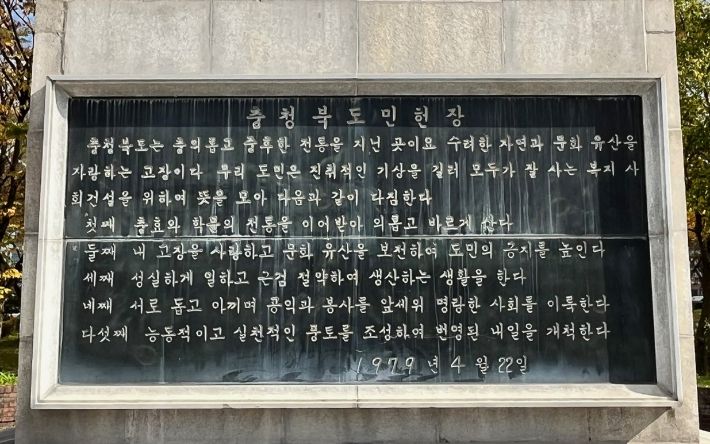 충청북도민헌장
충청북도는 충의롭고 출중한 전통을 지닌 곳이요 수려한 자연과 문화 유산을
자랑하는 고장이다 우리 도민은 진취적인 기상을 길러 모두가 잘 사는 복지 사
회건설을 위하여 뜻을 모아 다음과 같이 다짐한다
첫째 충효와 학문의 전통을 이어받아 의롭고 바르게 산다
둘째 내 고장을 사랑하고 문화 유산을 보전하여 도민의 긍지를 높인다
세째 성실하게 일하고 근검 절약하여 생산하는 생활을 한다
네째 서로 돕고 아끼며 공익과 봉사를 앞세워 명랑한 사회를 이룩한다
다섯째 능동적이고 실천적인 풍토를 조성하여 번영된 내일을 개척한다
1979년 4월 22일